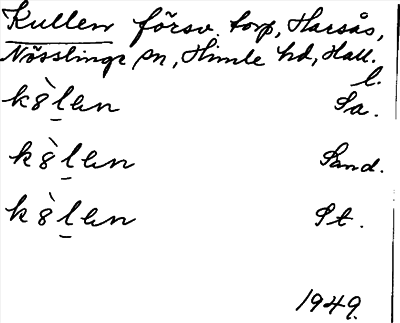 Kullen försv. torp, Harsås,
Nösslinge sn, Himle hd, Hall.
l.
k8̀l̠en Sa.
k8̀l̠en Sand.
k8̀l̠en St.
1949.